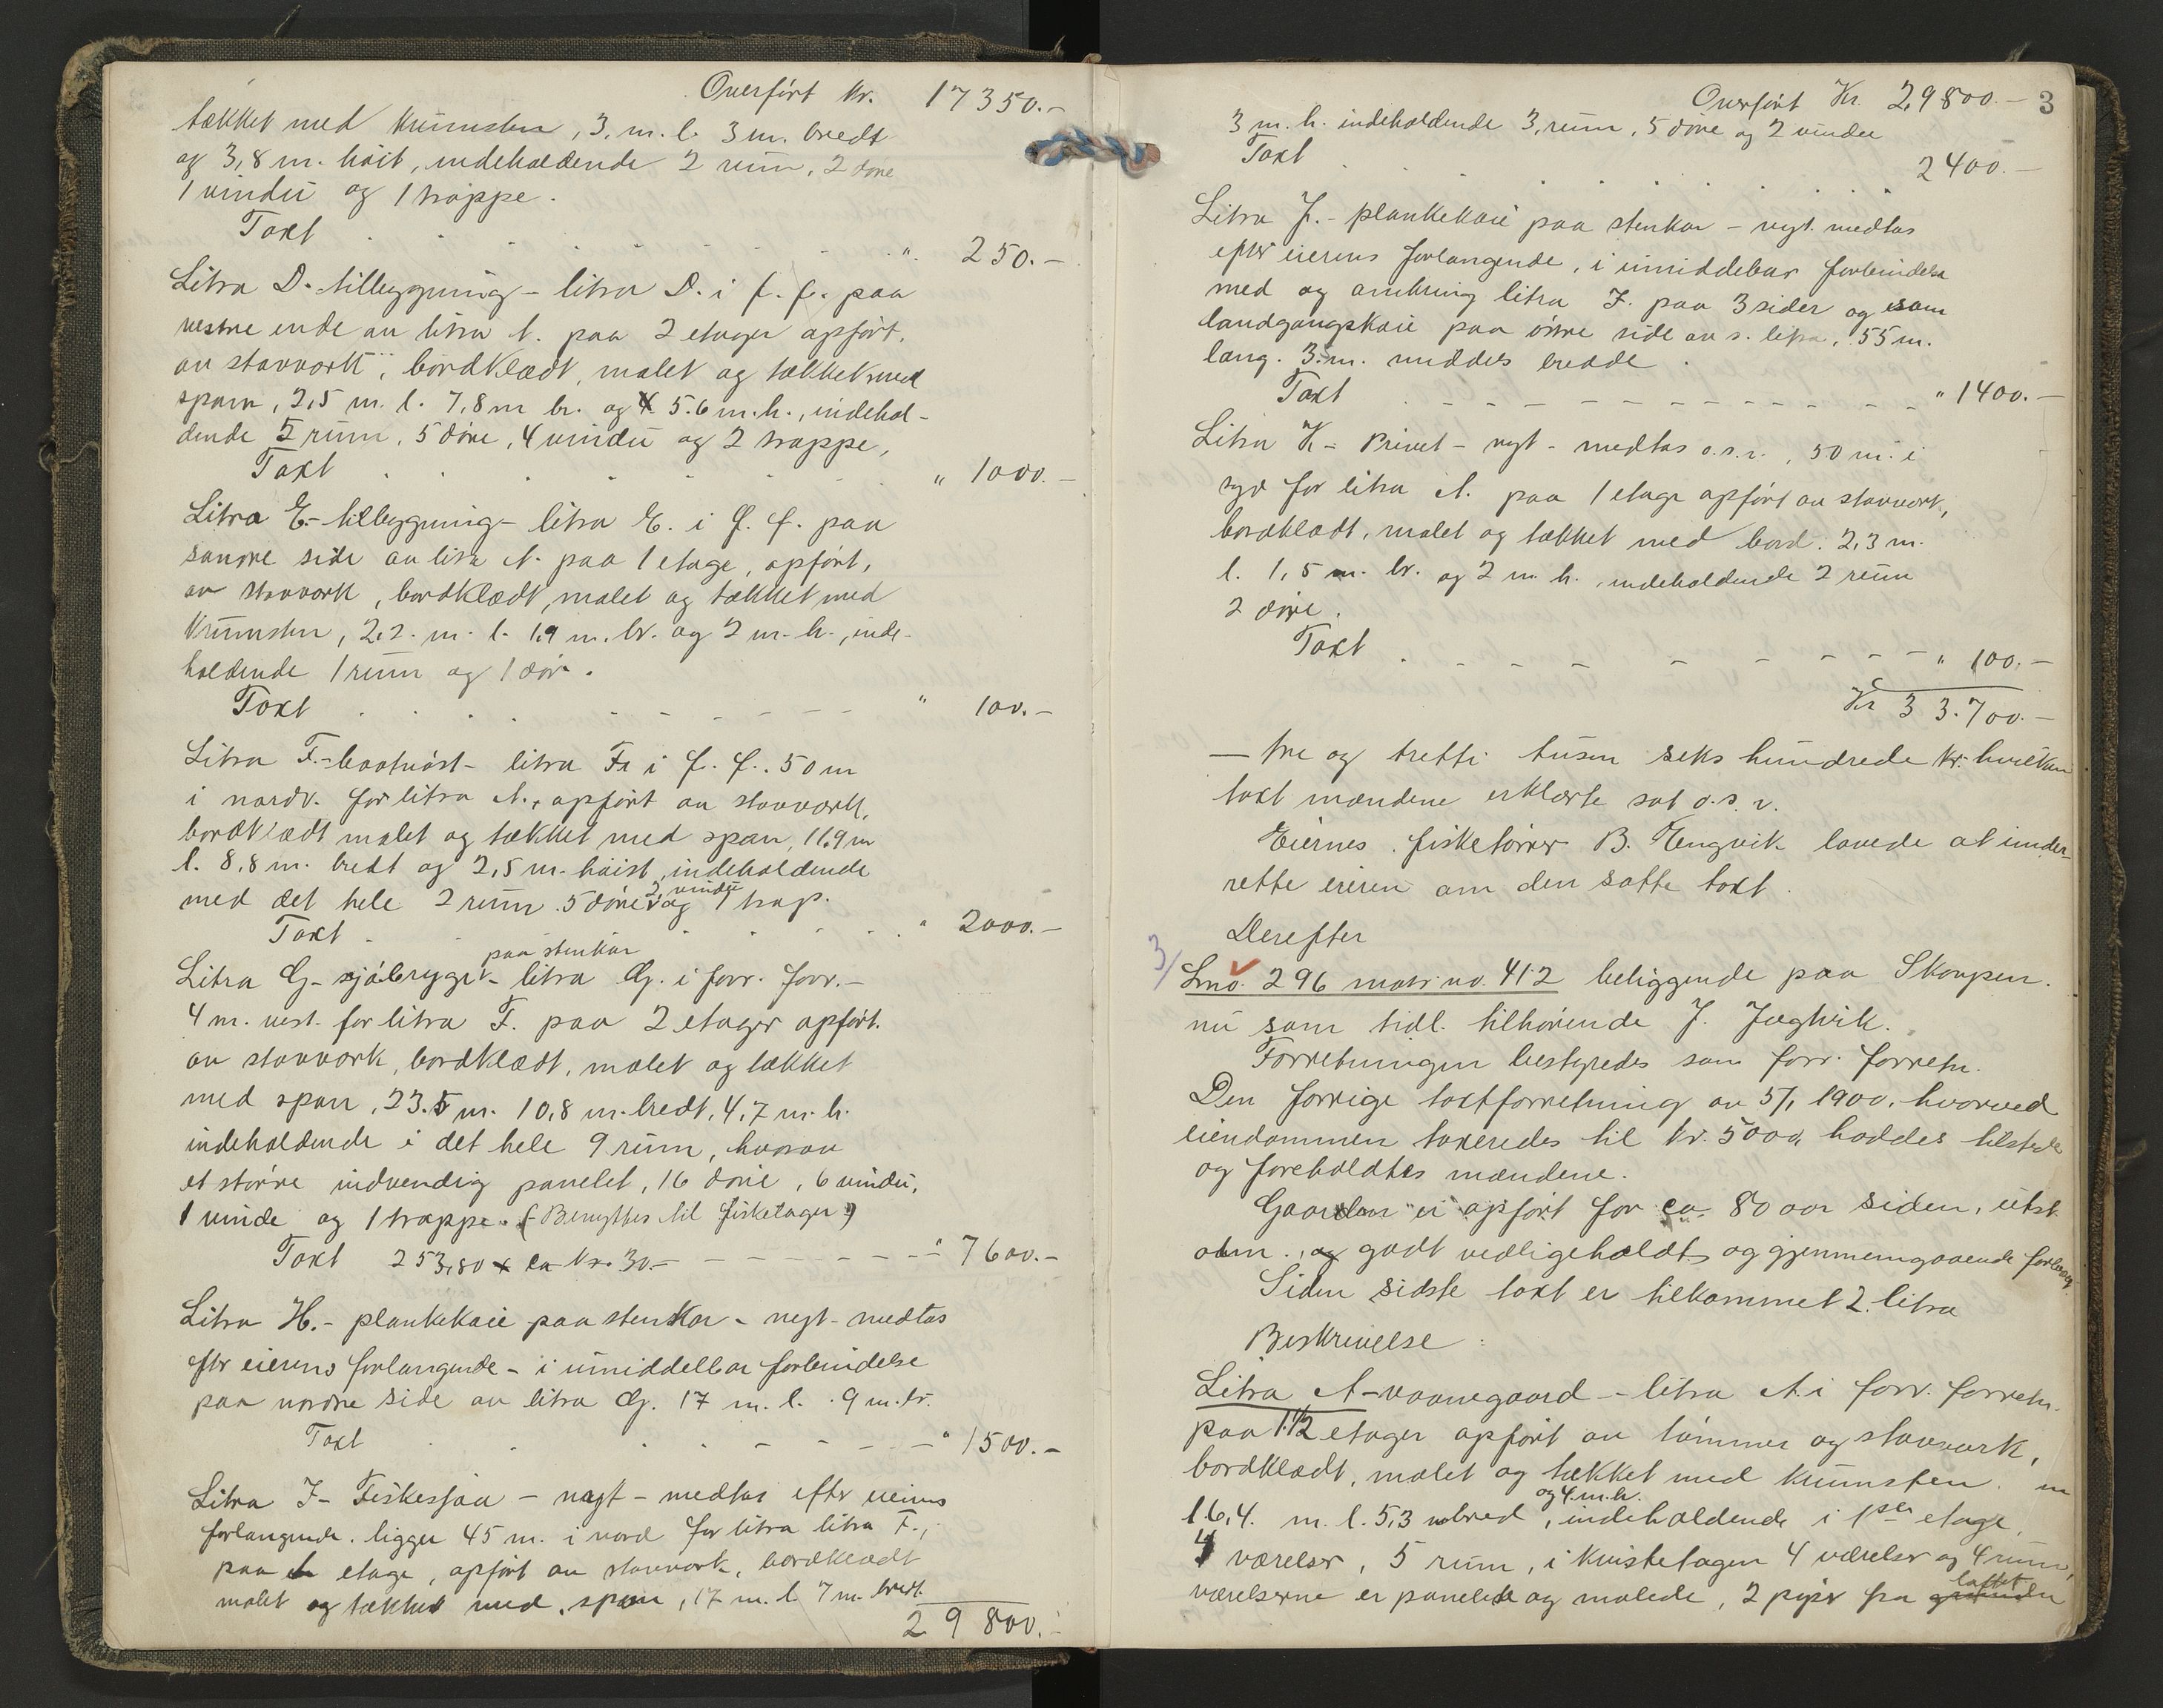 Overført Kr. 17350.-
tækket med Krumsten, 3. m. l. 3 m. bredt
og 3,8 m. høit, indeholdende 2 rum, 2 døre
1 vindu og 1 trappe.
Taxt . . . . . . . . ". 250.-
Litra D.- tilbygning - litra D. i f. f. paa
vestre ende av litra A. paa 2 etager opført,
av stavverk, bordklædt, malet og tækket med
spaan, 2,5 m. l. 7,8 m br. og 5.6 m. h., indehol-
dende 5 rum, 5 døre, 4 vindu og 2 trappe,
Taxt . . . . . . . " 1000.-
Litra E.- tilbygning - litra E. i f. f. paa
søndre side av litra A. paa 1 etage, opført,
av stavverk, bordklædt, malet og tækket med
Krumsten, 2,2. m. l. 1,9 m. br. og 2 m. h., inde-
holdende 1 rum og 1 dør.
Taxt . . . . - - - - - " 100.-
Litra F.- baatnøst - litra F. i f. f. 50 m
i nordv. for litra A., opført av stavverk,
bordklædt malet og tækket med spaan, 11,9 m
l. 8,8 m. bredt og 2,5 m. høist, indeholdende
med det hele 2 rum. 5 døre 2 vindu og 1 trap.
Taxt . . . . . . . " 2000.-
paa stenkar
Litra G - sjøbrygge - litra G. i forr. forr. -
4 m. vest. for litra F. paa 2 etager opført.
av stavverk, bordklædt, malet og tækket
med spaan, 23.5 m. 10,8 m. bredt, 4,7 m. h.
indeholdende i det hele 9 rum, hvorav
et større indvendig panelet, 16 døre, 6 vindu,
1 vinde og 1 trappe. (Benyttes til fiskelager)
Taxt 253,80 x ca Kr. 30.- - - - - - " 7600.-
Litra H.- plankekaie paa stenkar - nyt - medtas
efter eierens forlangende - i umiddelbar forbindelse
paa nordre side av litra G. 17 m. l. 9 m. br.
Taxt . . . . - - - - " 1500.-
Litra I - Fiskesjaa - nyt - medtas efter eierens
forlangende. ligger 45 m. i nord for litra litra F.,
paa 1 etage, opført av stavverk, bordklædt
malet og tækket med spaan, 17 m. l. 7 m. bredt.
29 800.-
Overført Kr. 29800.- 3
3 m. h. indeholdende 3, rum, 5 døre og 2 vindu
Taxt . . . . . . . . 2400.-
Litra J.- plankekaie paa stenkar - nyt. medtas
efter eierens forlangende, i umiddelbar forbindelse
med og omkring litra I. paa 3 sider og som
landgangskaie paa østre side av s. litra, 55 m.
lang. 3. m. middels bredde.
Taxt . - - - - - - - - - " 1400.-
Litra K - Privet - nyt - medtas o. s. v., 50 m. i
syd for litra A. paa 1 etage opført av stavverk,
bordklædt, malet og tækket med bord. 2,3 m.
l. 1,5 m. br. og 2 m. h. indeholdende 2 rum
2 døre.
Taxt . - - - - - - - - " 100.-
Kr 33.700.-
— tre og tretti tusen seks hundrede kr. hvilken
taxt mændene erklærte sat o. s. v.
Eiernes fisketørrer B. Engvik lovede at under-
rette eieren om den satte taxt.
Derefter
3/ Lno. 296 matr. no. 412 beliggende paa Skorpen.
nu som tidl. tilhørende J. Jægtvik.
Forretningen bestyredes som forr. forretn.
Den forrige taxtforretning av 5/1 1900, hvorved
eiendommen taxeredes til kr. 5000, haddes tilstede
og foreholdtes mændene.
Gaarden er opført for ca. 80 aar siden, utst.
alm. godt vedligeholdt og gjennemgaaende
Siden sidste taxt er tilkommet 2. litra
Beskrivelse:
Litra A - vaanegaard - litra A. i forr. forretn.
paa 1 1/2 etager opført av tømmer og stavverk,
bordklædt, malet og tækket med krumsten.
16,4. m. l. 5,3 m bred og 4. m. h., indeholdende i 1ste etage,
4 værelser, 5 rum, i kvistetagen 4 værelser og 4 rum,
værelserne er panelede og malede, 2 piper fra loftet